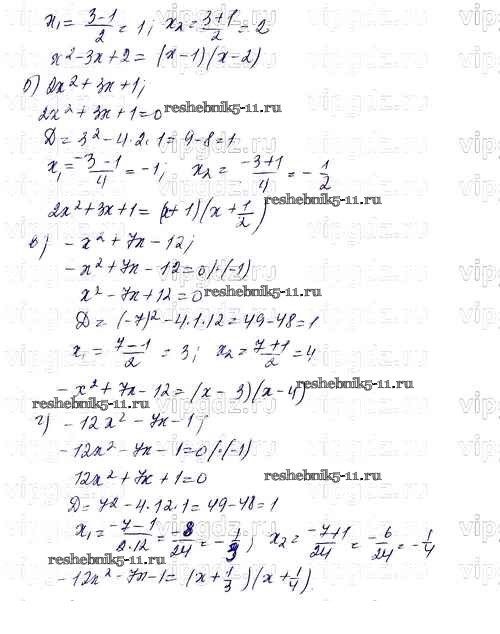 x₁ = (3-1)/2 = 1; x₂ = (3+1)/2 = 2
x²-3x+2 = (x-1)(x-2)
б) 2x²+3x+1;
2x²+3x+1=0
reshebnik5-11.ru
D = 3²-4·2·1=9-8=1
x₁ = (-3-1)/4 = -1; x₂ = (-3+1)/4 = -1/2
2x²+3x+1 = (x+1)(x+1/2)
reshebnik5-11.ru
в) -x²+7x-12;
-x²+7x-12=0/·(-1)
x²-7x+12=0
reshebnik5-11.ru
D = (-7)²-4·1·12=49-48=1
x₁ = (7-1)/2 = 3; x₂ = (7+1)/2 = 4
-x²+7x-12 = (x-3)(x-4)
reshebnik5-11.ru
reshebnik5-11.ru
г) -12x²-7x-1;
-12x²-7x-1=0/·(-1)
12x²+7x+1=0
reshebnik5-11.ru
D=7²-4·12·1=49-48=1
x₁ = (-7-1)/(2·12) = -8/24 = -1/3; x₂ = (-7+1)/24 = -6/24 = -1/4
reshebnik5-11.ru
-12x²-7x-1 = (x+1/3)(x+1/4)
vipgdz.ru